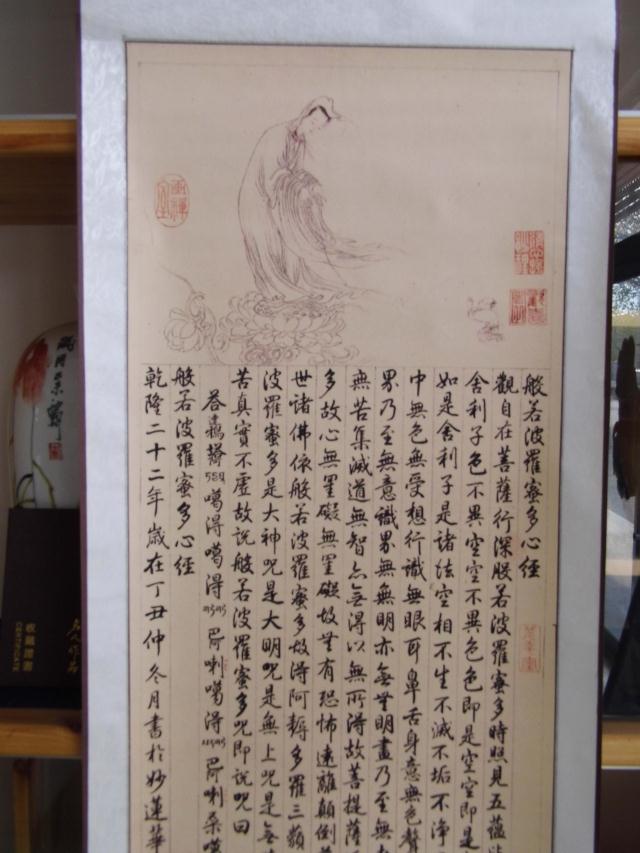 般若波羅蜜多心經
觀自在菩薩行深般若波羅蜜多時照見五蘊
舍利子色不異空空不異色色即是空空即是
如是舍利子是諸法空相不生不滅不垢不淨
中無色無受想行識無眼耳鼻舌身意無色聲
界乃至無意識界無無明亦無無明盡乃至無
無苦集滅道無智亦無得以無所得故菩提薩
多故心無罣礙無罣礙故無有恐怖遠離顛倒
世諸佛依般若波羅蜜多故得阿耨多羅三藐
波羅蜜多是大神咒是大明咒是無上咒是無
苦真實不虛故說般若波羅蜜多咒即說咒曰
噶得噶得 噶得
般若波羅蜜多心經
乾隆二十二年歲在丁丑仲冬月書於妙蓮華
收藏證書
CERTIFICATE
名人作品